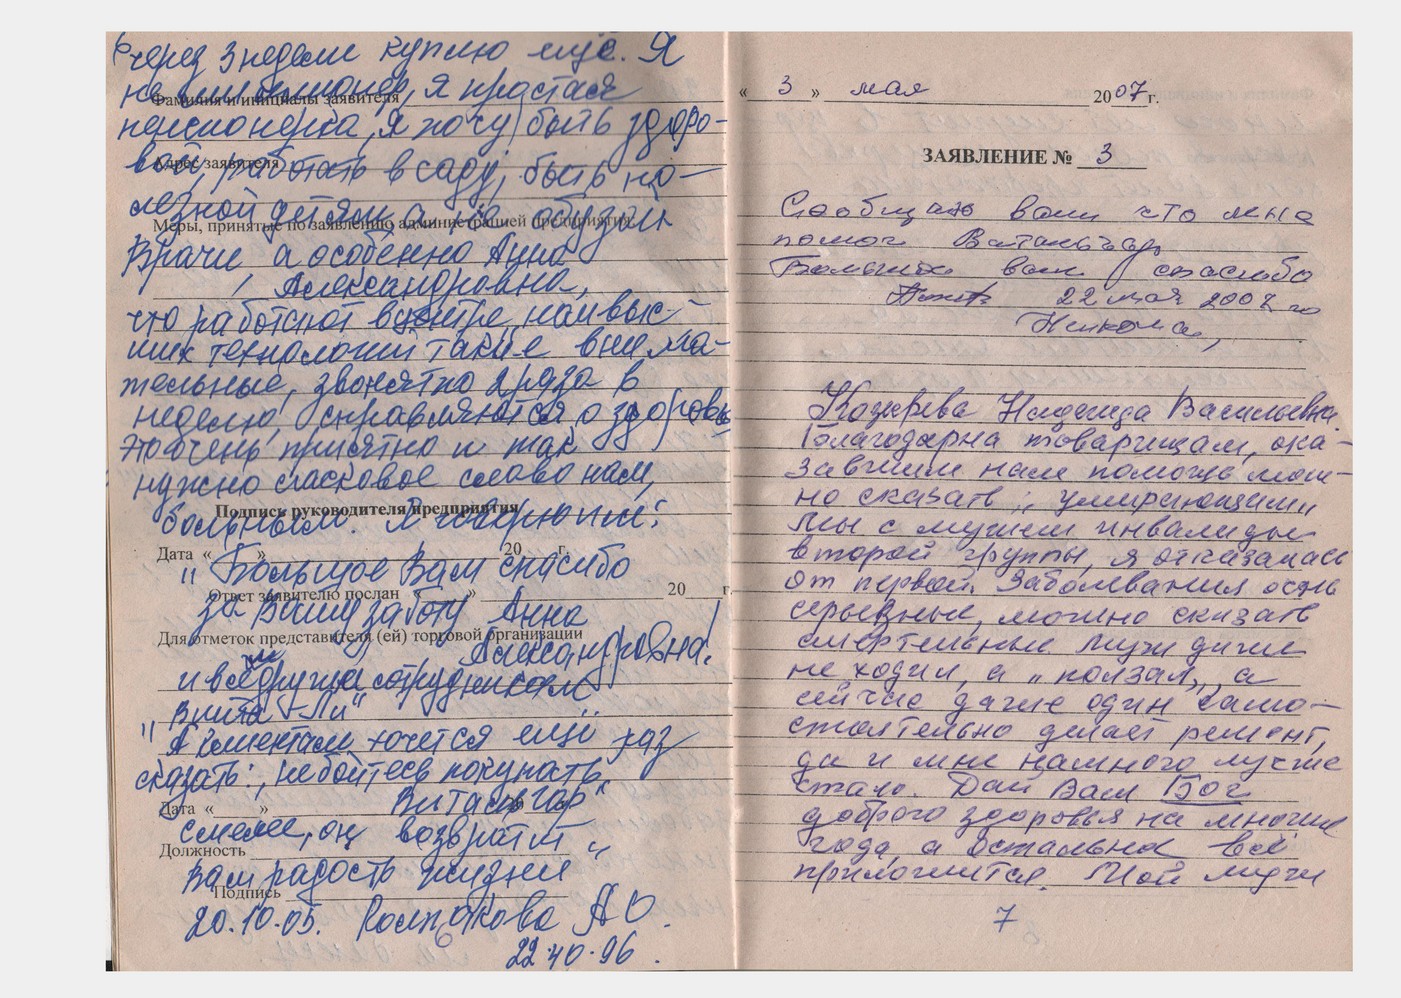 через 3 недели куплю ещё. Я
не миллионер, я простая
Фамилия и инициалы заявителя
пенсионерка, я хочу быть здоро-
вой, работать в саду, быть по-
Адрес заявителя
лезной детям а не обузой
Меры, принятые по заявлению администрацией предприятия:
Врачи, а особенно Анна
Александровна,
что работают в центре наивыс-
ших технологий такие внима-
тельные, звонят по 2 раза в
неделю, справляются о здоровье
Это очень приятно и так
нужно ласковое слово нам,
Подпись руководителя предприятия
больным. Я говорю им:
Дата « » 20 г.
"Большое Вам спасибо
Ответ заявителю послан « » 20 г.
за Вашу заботу Анна
Для отметок представителя (ей) торговой организации
Александровна!
и всем другим сотрудникам
Вита-Ли"
"А клиентам хочется ещё раз
сказать: "не бойтесь покупать
Дата « »
"Витасьгар"
смелее, он возвратит
Должность
Вам радость жизни"
Подпись
20.10.05. Колпакова А О.
22-40-96.
« 3 » мая 2007г.
ЗАЯВЛЕНИЕ № 3
Сообщаю вам что мне
помог
Большое вам спасибо
22 мая 2007 го
Козырева Надежда Васильевна.
Благодарна товарищам, ока-
завшим нам помощь мож-
но сказать "умирающим"
Мы с мужем инвалиды
второй группы, я отказалась
от первой. Заболевания очень
серьёзные, можно сказать
смертельные муж даже
не ходил, а "ползал", а
сейчас даже один само-
стоятельно делает ремонт,
да и мне намного лучше
стало. Дай Вам Бог
доброго здоровья на многие
года, а остальное всё
приложится. Мой муж
7